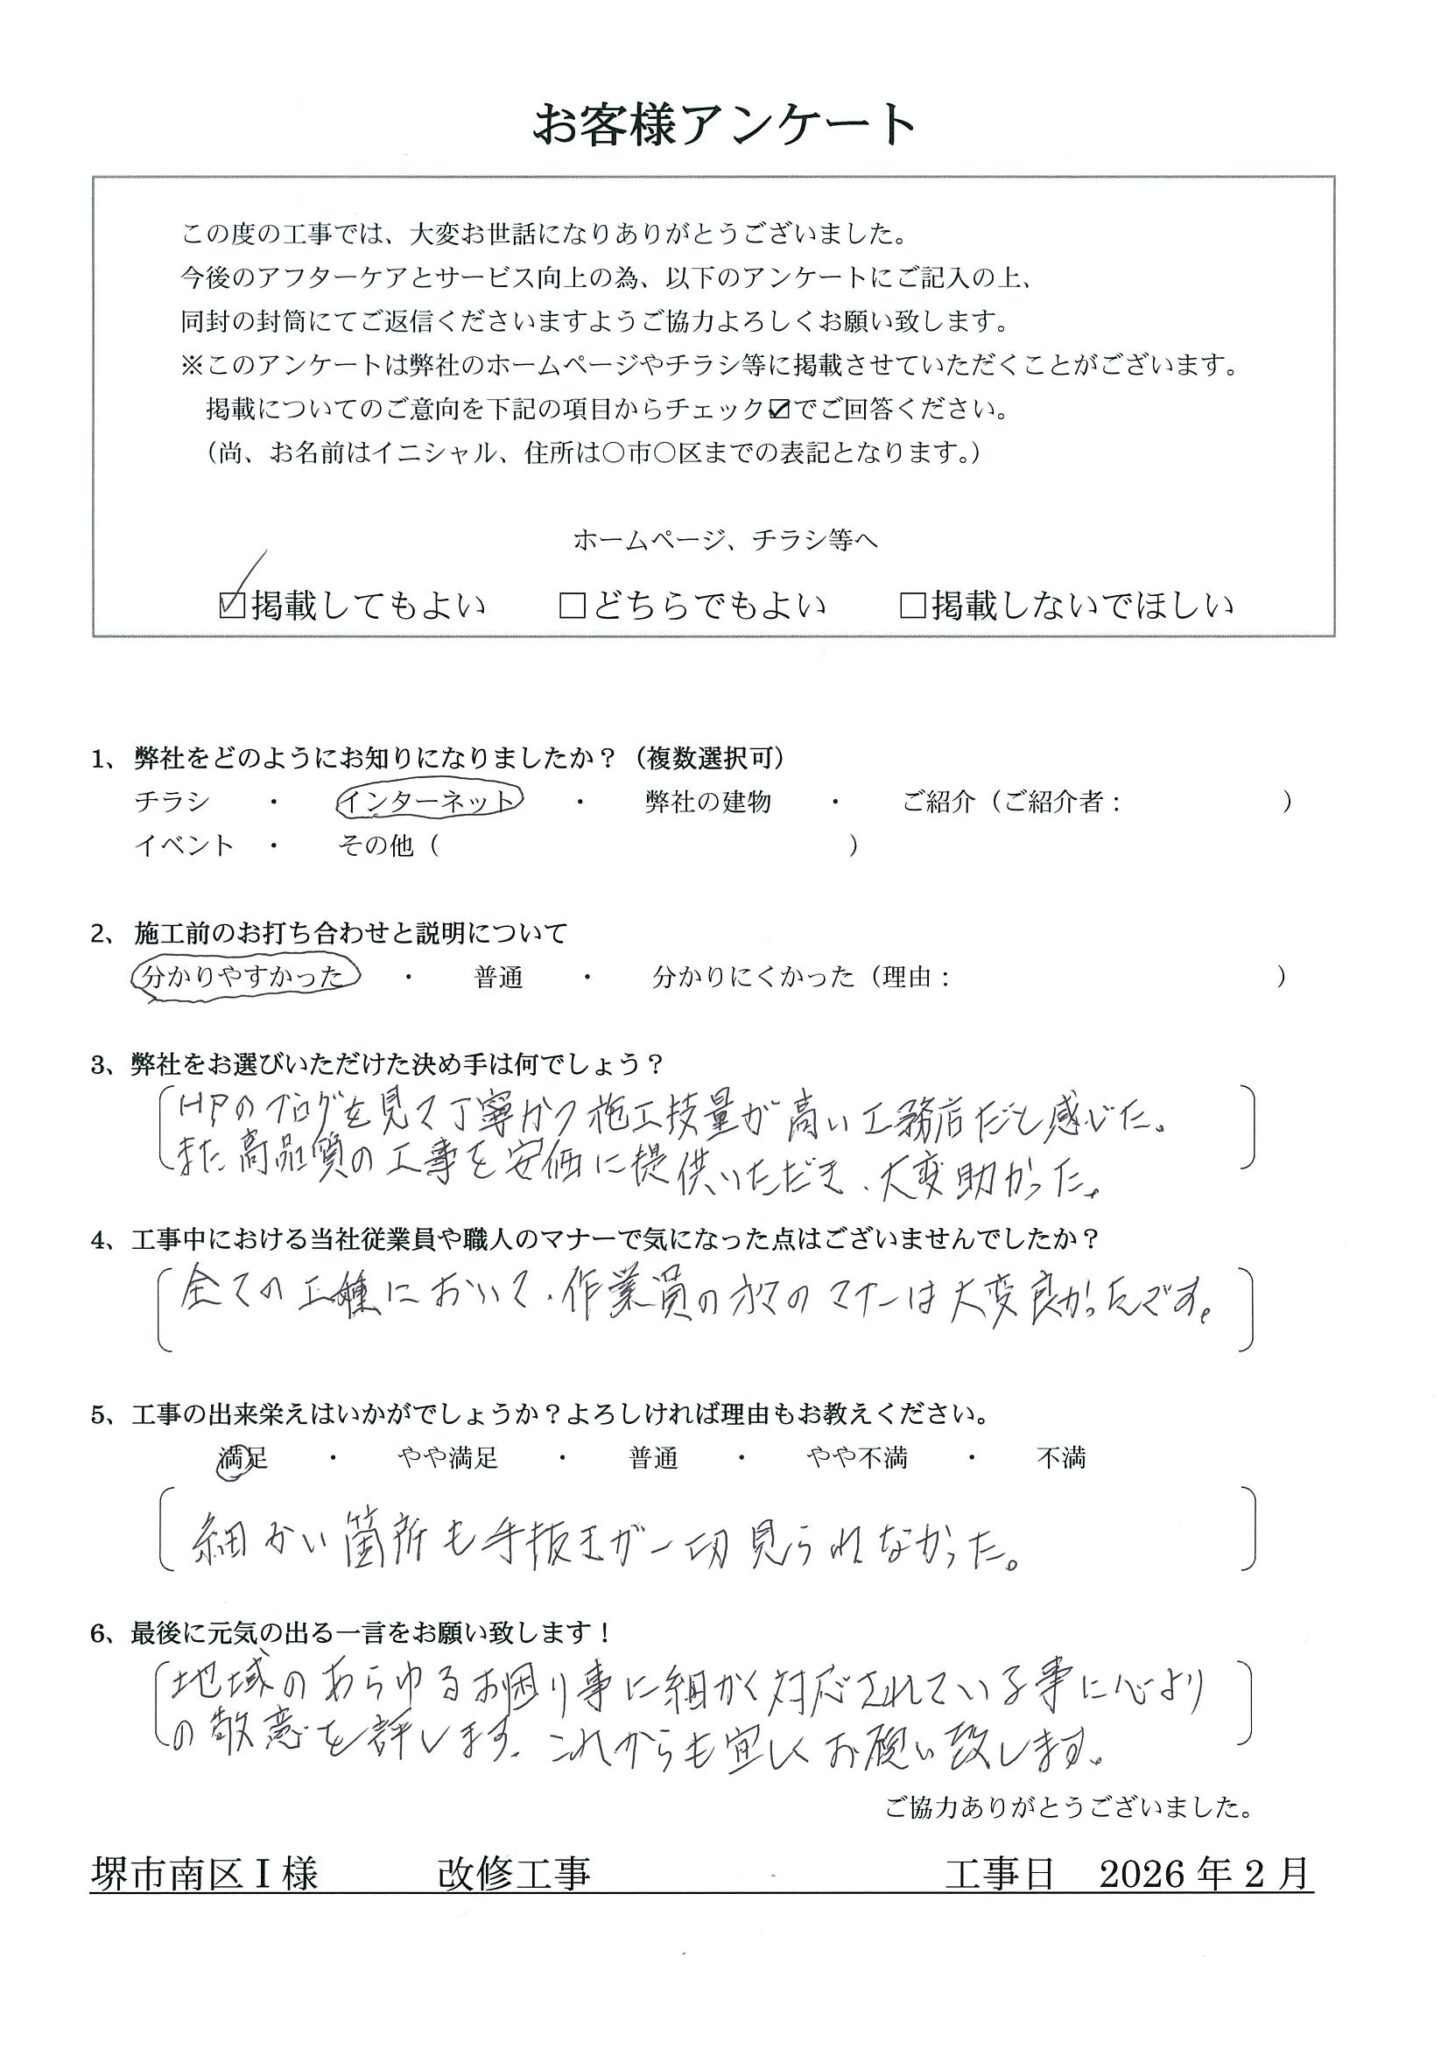 お客様アンケート
この度の工事では、大変お世話になりありがとうございました。
今後のアフターケアとサービス向上の為、以下のアンケートにご記入の上、
同封の封筒にてご返信くださいますようご協力よろしくお願い致します。
※このアンケートは弊社のホームページやチラシ等に掲載させていただくことがございます。
掲載についてのご意向を下記の項目からチェック☑でご回答ください。
(尚、お名前はイニシャル、住所は○市○区までの表記となります。)
ホームページ、チラシ等へ
☑掲載してもよい □どちらでもよい □掲載しないでほしい
1、弊社をどのようにお知りになりましたか?(複数選択可)
チラシ ・ インターネット ・ 弊社の建物 ・ ご紹介(ご紹介者: )
イベント ・ その他( )
2、施工前のお打ち合わせと説明について
分かりやすかった ・ 普通 ・ 分かりにくかった(理由: )
3、弊社をお選びいただけた決め手は何でしょう?
HPのブログを見て丁寧かつ施工技量が高い工務店だと感じた。
また高品質の工事を安価に提供いただき、大変助かった。
4、工事中における当社従業員や職人のマナーで気になった点はございませんでしたか?
全ての工種において、作業員の方々のマナーは大変良かったです。
5、工事の出来栄えはいかがでしょうか?よろしければ理由もお教えください。
満足 ・ やや満足 ・ 普通 ・ やや不満 ・ 不満
細かい箇所も手抜きが一切見られなかった。
6、最後に元気の出る一言をお願い致します!
地域のあらゆるお困り事に細かく対応されている事に心より
の敬意を評します。これからも宜しくお願い致します。
ご協力ありがとうございました。
堺市南区 I 様 改修工事 工事日 2026 年 2 月